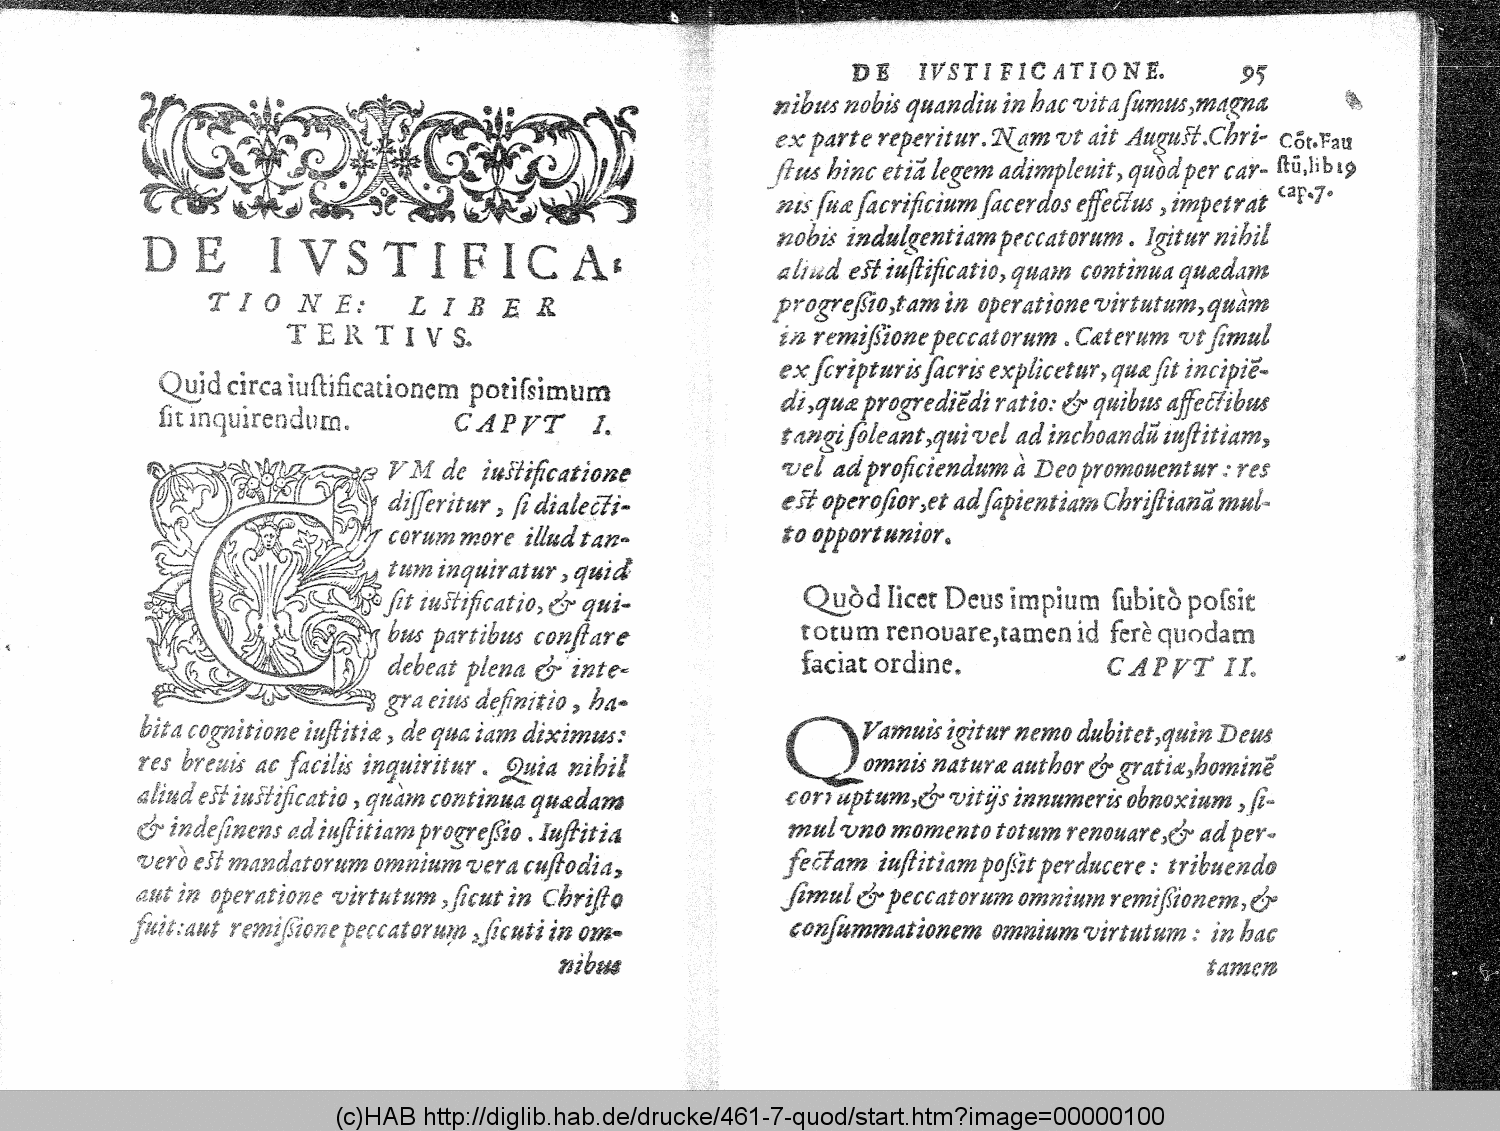 DE IVSTIFICA-
TIONE: LIBER
TERTIVS.
Quid circa iuſtificationem potiſsimum
ſit inquirendum. CAPVT I.
CVM de iuſtificatione
diſſeritur, ſi dialecti-
corum more illud tan-
tum inquiratur, quid
ſit iuſtificatio, & qui-
bus partibus conſtare
debeat plena & inte-
gra eius definitio, ha-
bita cognitione iuſtitiæ, de qua iam diximus:
res breuis ac facilis inquiritur. Quia nihil
aliud eſt iuſtificatio, quàm continua quædam
& indeſinens ad iuſtitiam progreſſio. Iuſtitia
verò eſt mandatorum omnium vera cuſtodia,
aut in operatione virtutum, ſicut in Chriſto
fuit: aut remiſſione peccatorum, ſicuti in om-
nibus
DE IVSTIFICATIONE. 95
nibus nobis quandiu in hac vita ſumus, magna
ex parte reperitur. Nam vt ait Auguſt. Chri-
ſtus hinc etiã legem adimpleuit, quòd per car-
nis ſuæ ſacrificium ſacerdos effectus, impetrat
nobis indulgentiam peccatorum. Igitur nihil
aliud eſt iuſtificatio, quam continua quædam
progreſſio, tam in operatione virtutum, quàm
in remiſſione peccatorum. Cæterum vt ſimul
ex ſcripturis ſacris explicetur, quæ ſit incipiẽ-
di, quæ progrediẽdi ratio: & quibus affectibus
tangi ſoleant, qui vel ad inchoandũ iuſtitiam,
vel ad proficiendum à Deo promouentur: res
eſt operoſior, et ad ſapientiam Chriſtianã mul-
to opportunior.
Cõt. Fau
ſtũ, lib 19
cap. 7.
Quòd licet Deus impium ſubitò poſsit
totum renouare, tamen id ferè quodam
faciat ordine. CAPVT II.
QVamuis igitur nemo dubitet, quin Deus
omnis naturæ author & gratiæ, hominẽ
corruptum, & vitijs innumeris obnoxium, ſi-
mul vno momento totum renouare, & ad per-
fectam iuſtitiam poſſit perducere: tribuendo
ſimul & peccatorum omnium remiſſionem, &
conſummationem omnium virtutum: in hac
tamen
(c)HAB http://diglib.hab.de/drucke/461-7-quod/start.htm?image=00000100